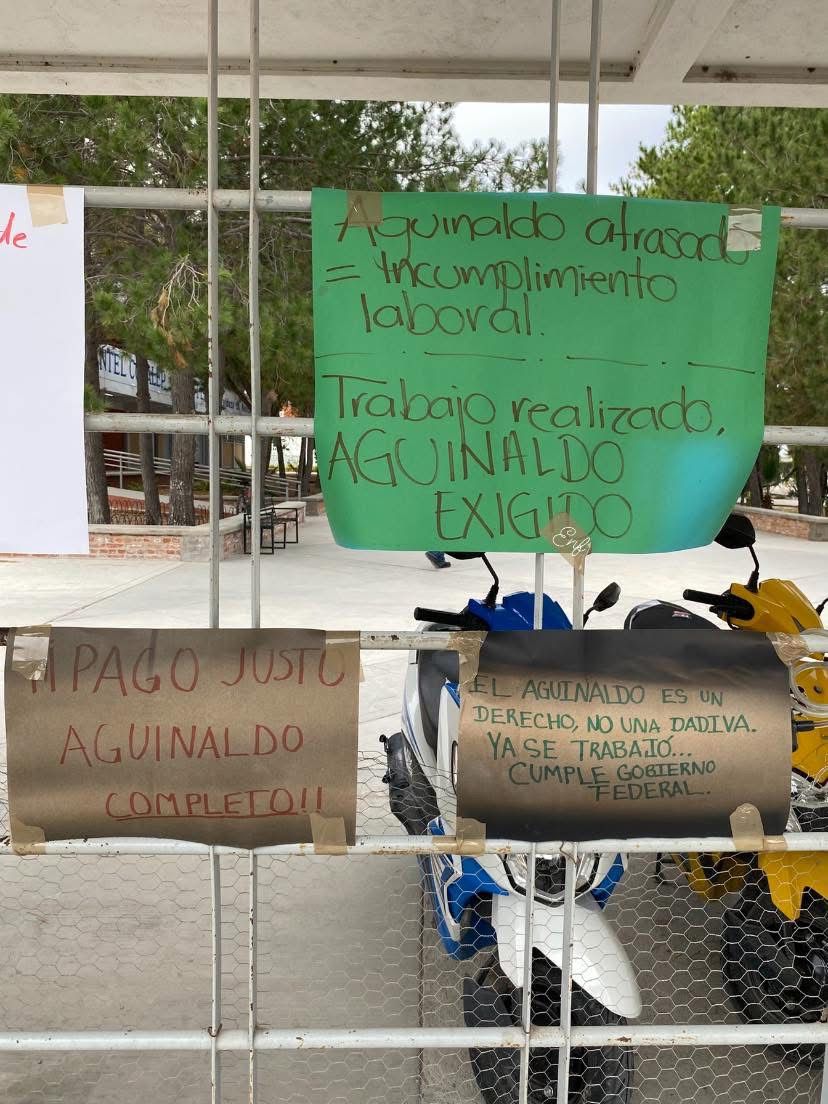 de
Aguinaldo atrasado
= Incumplimiento
laboral.
Trabajo realizado,
AGUINALDO
EXIGIDO
¡¡PAGO JUSTO
AGUINALDO
COMPLETO!!
EL AGUINALDO ES UN
DERECHO, NO UNA DADIVA.
YA SE TRABAJÓ...
CUMPLE GOBIERNO
FEDERAL.